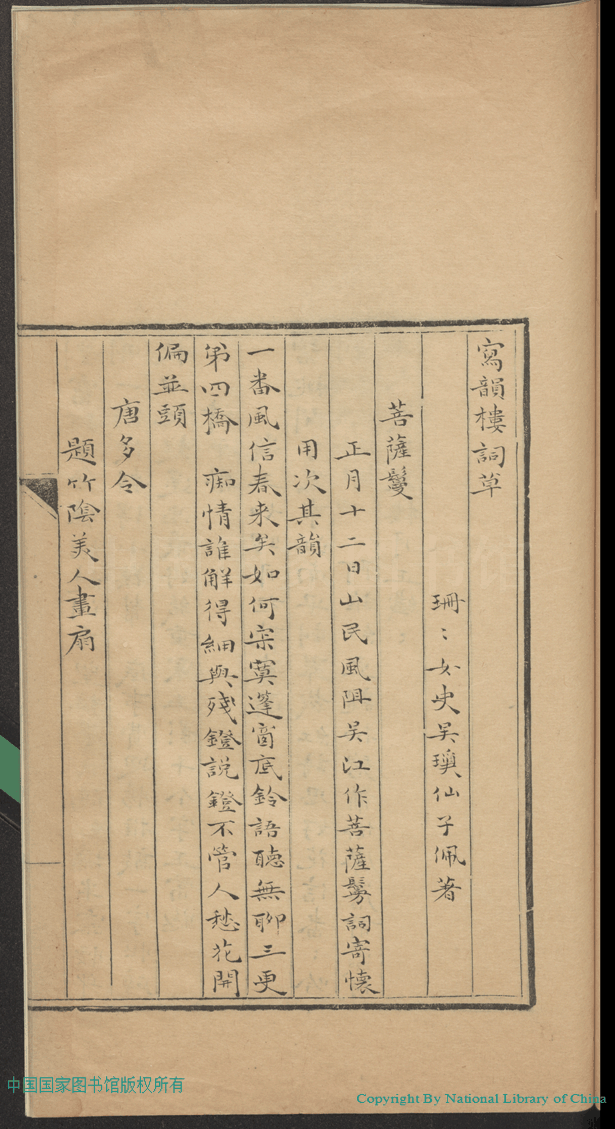 寫韻樓詞草
珊〻女史吳瓊仙子佩著
菩薩鬘
正月十二日山民風阻吳江作菩薩鬘詞寄懷
用次其韻
一番風信春来矣如何寂寞蓬窗底鈴語聴無聊三更
第四橋　痴情誰解得細與殘鐙説鐙不管人愁花開
偏並頭
唐多令
題竹陰美人畫扇
中国国家图书馆版权所有
Copyright By National Library of China